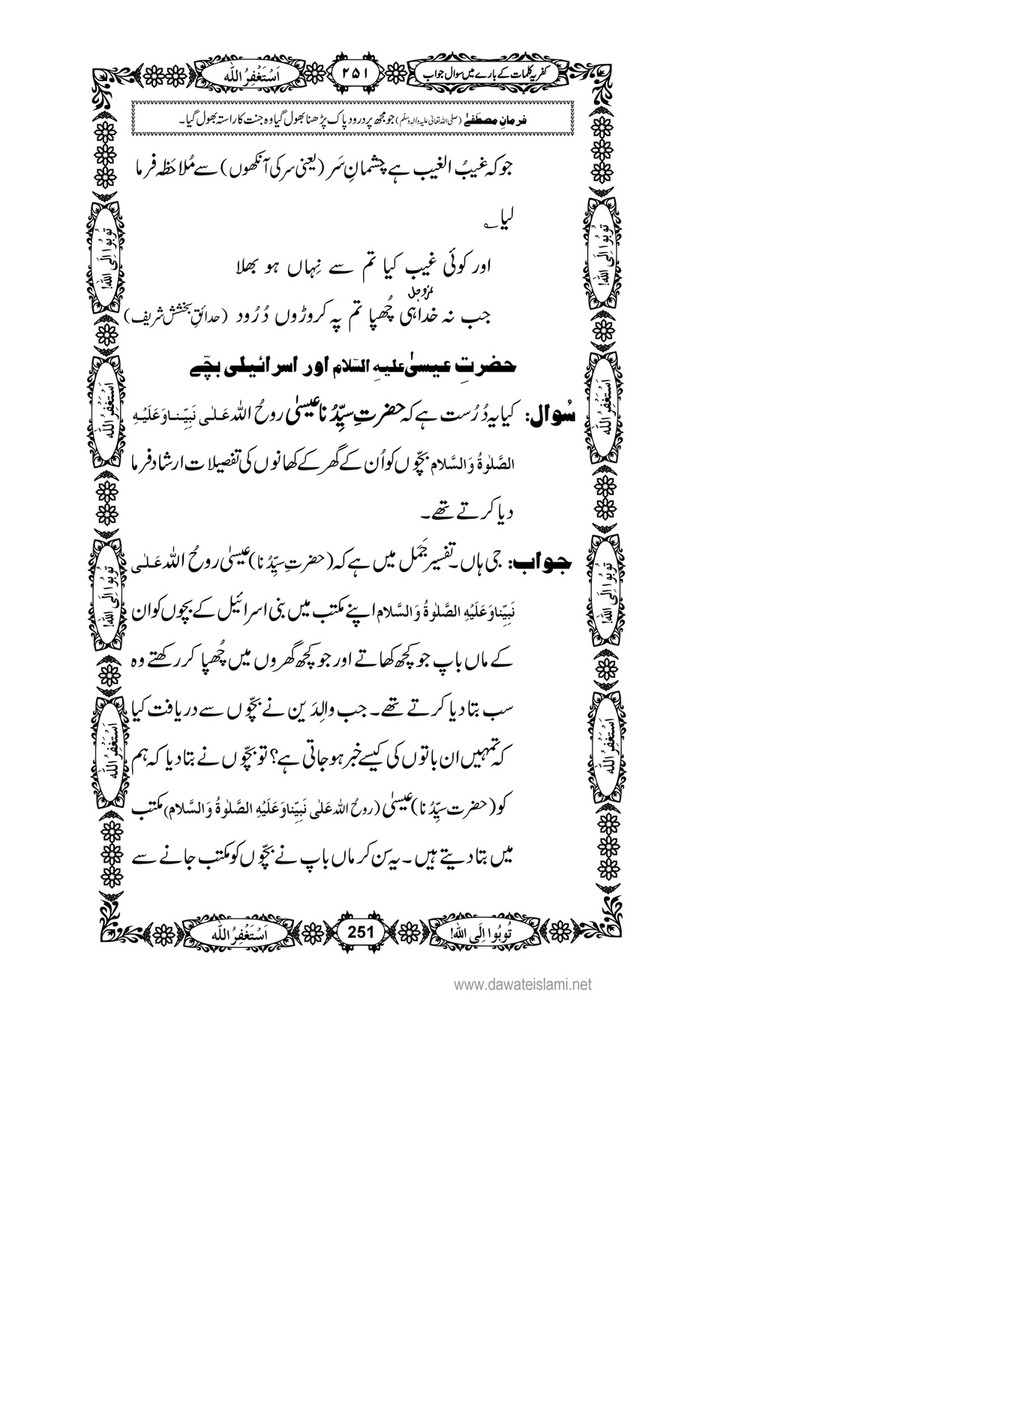 کفریہ کلمات کے بارے میں سوال جواب ۲۵۱ اَسْتَغْفِرُ اللّٰه
فرمانِ مصطفےٰ (صلی اللہ تعالیٰ علیہ والہٖ وسلّم) جو مجھ پر درود پاک پڑھنا بھول گیا وہ جنت کا راستہ بھول گیا۔
جو کہ غیبُ الغیب ہے چشمانِ سَر (یعنی سر کی آنکھوں) سے مُلاحَظہ فرما
لیا ؎
اور کوئی غیب کیا تم سے نِہاں ہو بھلا
جب نہ خدا عزوجل ہی چُھپا تم پہ کروڑوں دُرُود (حدائقِ بخشش شریف)
حضرتِ عیسیٰ علیہِ السّلام اور اسرائیلی بچّے
سُوال: کیا یہ دُرُست ہے کہ حضرتِ سیِّدُنا عیسیٰ روحُ اللہ عَلٰی نَبِیِّنا وَعَلَیْہِ
الصَّلٰوۃُ وَالسَّلام بچّوں کو اُن کے گھر کے کھانوں کی تفصیلات ارشاد فرما
دیا کرتے تھے۔
جواب: جی ہاں۔ تفسیر جَمَل میں ہے کہ (حضرتِ سیِّدُنا) عیسیٰ روحُ اللہ عَلٰی
نَبِیِّنا وَعَلَیْہِ الصَّلٰوۃُ وَالسَّلام اپنے مکتب میں بنی اسرائیل کے بچوں کو ان
کے ماں باپ جو کچھ کھاتے اور جو کچھ گھروں میں چُھپا کر رکھتے وہ
سب بتا دیا کرتے تھے۔ جب والِدَین نے بچّوں سے دریافت کیا
کہ تمہیں ان باتوں کی کیسے خبر ہو جاتی ہے؟ تو بچّوں نے بتا دیا کہ ہم
کو (حضرت سیِّدُنا) عیسیٰ (روحُ اللہ عَلٰی نَبِیِّنا وَعَلَیْہِ الصَّلٰوۃُ وَالسَّلام) مکتب
میں بتا دیتے ہیں۔ یہ سن کر ماں باپ نے بچّوں کو مکتب جانے سے
تُوبُوا اِلَی اللّٰه!
اَسْتَغْفِرُ اللّٰه
تُوبُوا اِلَی اللّٰه!
اَسْتَغْفِرُ اللّٰه
تُوبُوا اِلَی اللّٰه!
اَسْتَغْفِرُ اللّٰه
تُوبُوا اِلَی اللّٰه!
اَسْتَغْفِرُ اللّٰه
تُوبُوا اِلَی اللّٰه! 251 اَسْتَغْفِرُ اللّٰه
www.dawateislami.net